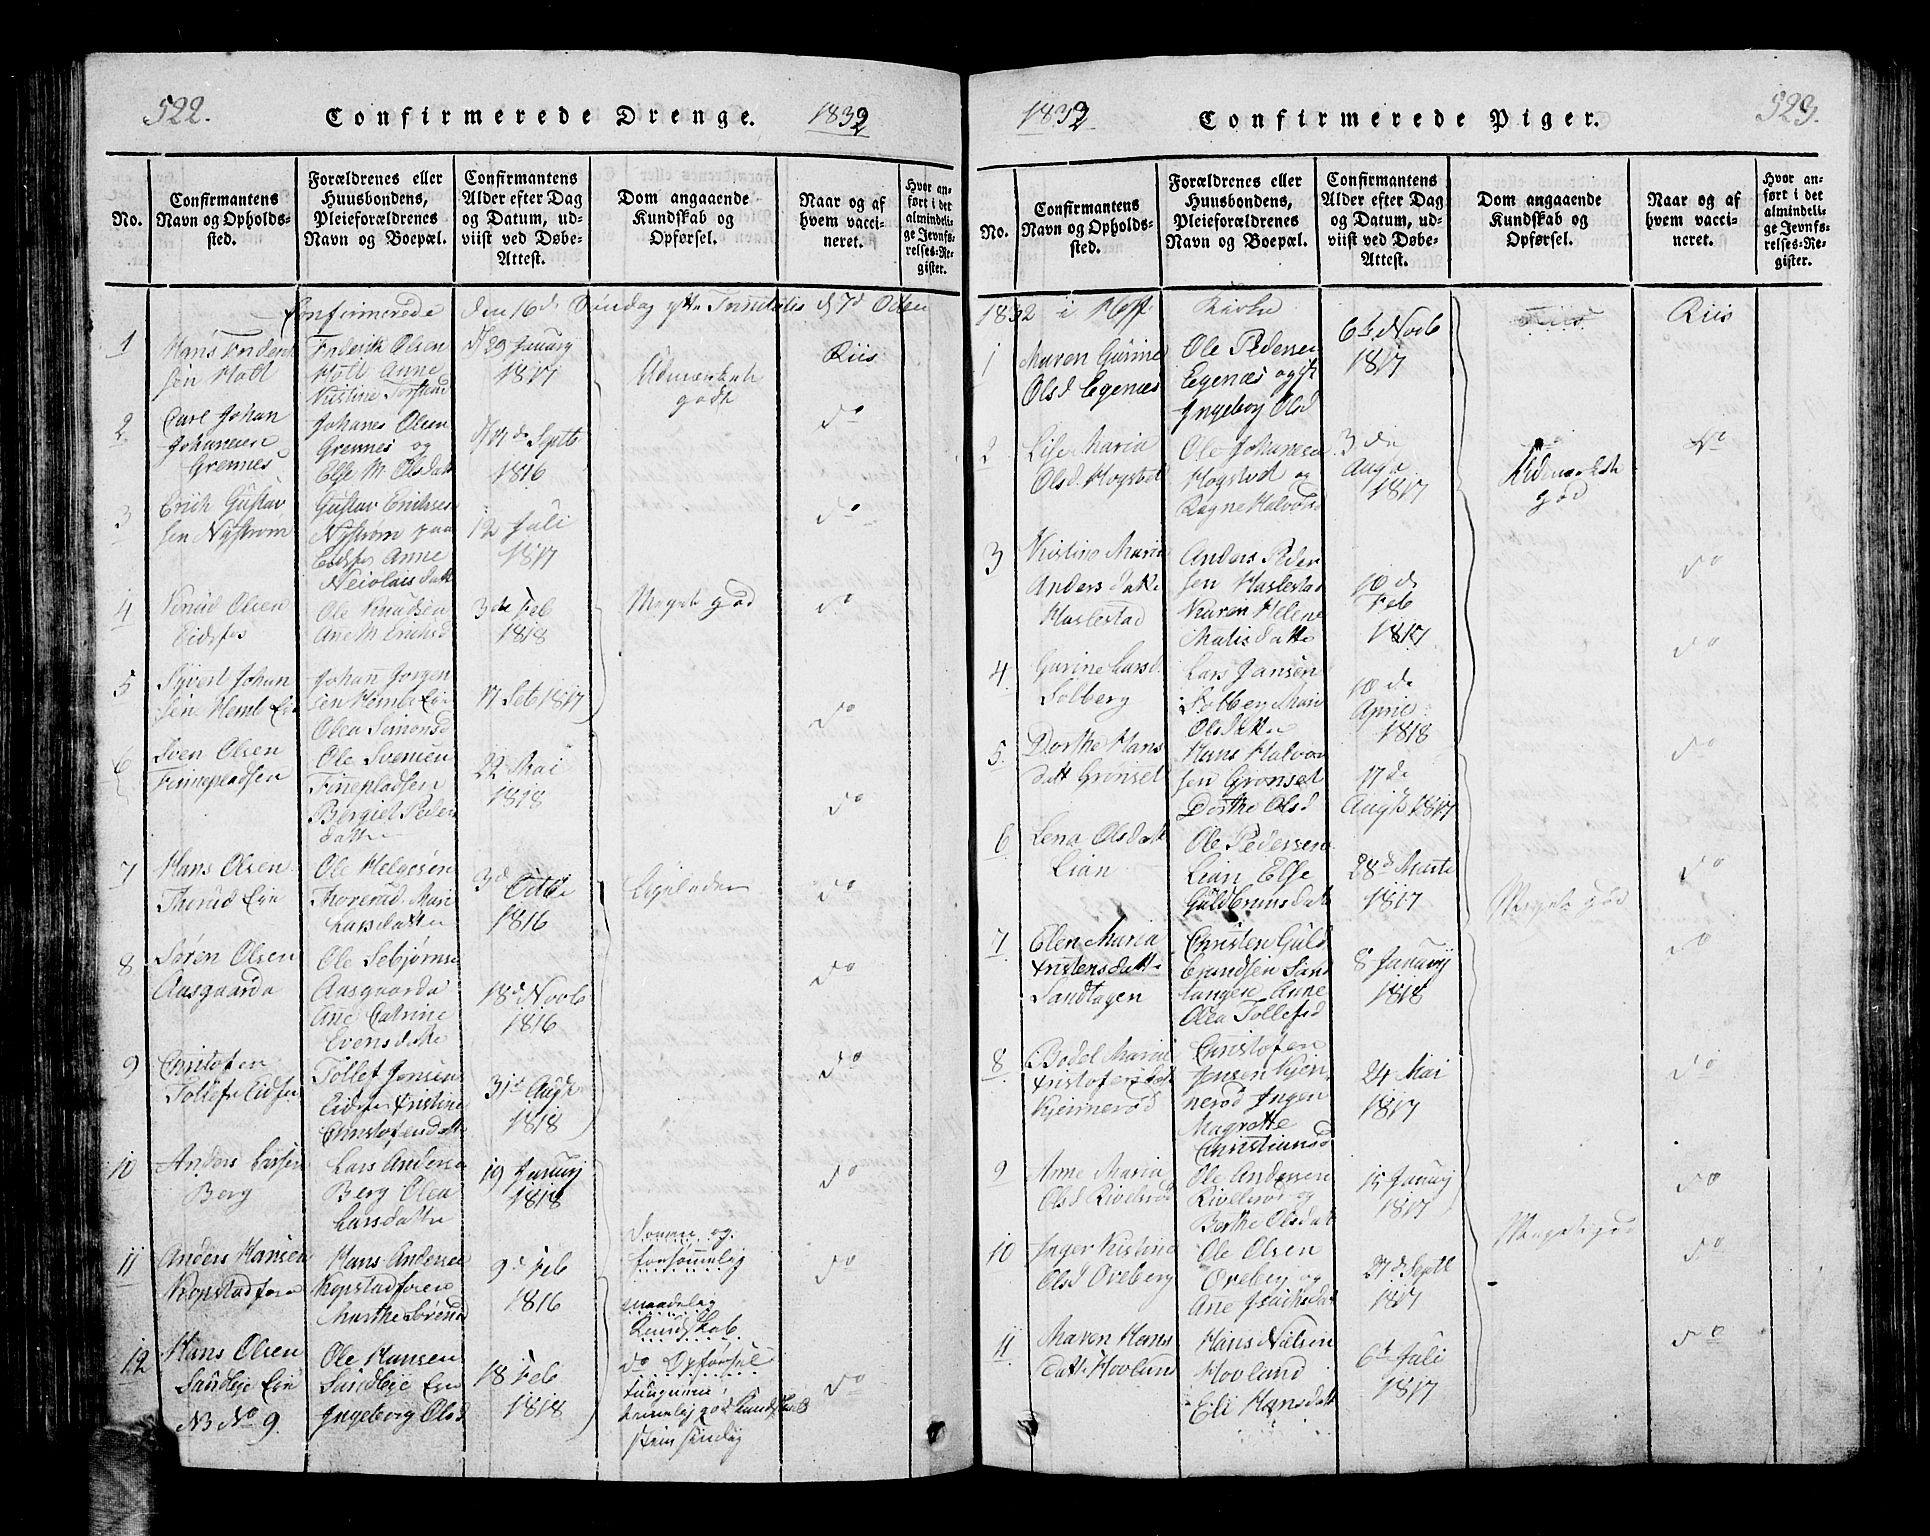 522.
Confirmerede Drenge.
1832
No.
Confirmantens
Navn og Opholds-
sted.
Forældrenes eller
Huusbondens,
Pleieforældrenes
Navn og Boepæl.
Confirmantens
Alder efter Dag
og Datum, ud-
viist ved Døbe-
Attest.
Dom angaaende
Kundskab og
Opførsel.
Naar og af
hvem vacci-
neret.
Hvor an-
ført i det
almindeli-
ge Jevnfø-
relses-Re-
gister.
Confirmerede den 16d Søndag efter Trinitatis d 7d Octbr
1
Hans Frederik
sen Holt
Frederik Olsen
Holt Anne
Kistine Torstend
d 29 Januarj
1817
Udmærket
godt
Riis
2
Carl Johan
Johanesen
Grennes
Johanes Olsen
Grennes og
Else M. Olsdatt
Septb
1816
do
3
Erich Gustav
sen Nystrøm
Gustav Erichsen
Nystrøm paa
Eidsfos Anne
Neiolaisdatt
12 Juli
1817
do
4
Knud Olsen
Eidsfos
Ole Knudsen
Ane M. Erichsd
3de Feb
1818
Meget god
do
5
Syvert Johan
sen Hemb Eie
Johan Jorgen
sen Hemb Eie
Olea Simonsd
17 Feb 1817
do
6
Sven Olsen
Finnepladsen
Ole Svensen
Finepladsen
Bergiet Peder
datter
22 Mai
1818
do
7
Hans Olsen
Thorud Eie
Ole Helgesen
Thorerud Mari
Larsdatter
3d Octbr
1816
Ligeledes
do
8
Søren Olsen
Aasgaarden
Ole Sebjørnse
Aasgaarden
Ane Catrine
Evensdatter
18d Novb
1816
do
9
Christofer
Tollefs Eidsfos
Tollef Jensen
Eidsfos Cristine
Christofersdatt
31te Augs
1818
do
10
Anders Larsen
Berg
Lars Andersen
Berg Olea
Larsdatter
19 Januarj
1818
do
11
Anders Hansen
Kopstadfore
Hans Andersen
Kopstadforen
Marthe Sørensd
9d Feb
1816
Doven og
forsømmelig
maadelig
Kundskab.
do
12
Hans Olsen
Sandleje Eie
NB No 9.
Ole Hansen
Sandleje Eie
Ingeborg Olsd
18 Feb
1818
do Opførsel
do
1832
Confirmerede Piger.
523.
No.
Confirmantens
Navn og Opholds-
sted.
Forældrenes eller
Huusbondens,
Pleieforældrenes
Navn og Boepæl.
Confirmantens
Alder efter Dag
og Datum, ud-
viist ved Døbe-
Attest.
Dom angaaende
Kundskab og
Opførsel.
Naar og af
hvem vacci-
neret.
Hvor an-
ført i det
almindeli-
ge Jevnfø-
relses-Re-
gister.
1832 i Hoff Kirke
1
Maren Gurine
Olsd Egenæs
Ole Pedersen
Egenæs og
Ingeborg Olsd
6te Novb
1817
Riis
2
Lise Maria
Olsd. Hogstet
Ole Johansen
Hogstedt og
Ragne Halvorsd
3de
Augs
1817
Udmerket
god
do
3
Kistine Maria
Andersdatter
Haslestad
Anders Peder
sen Haslestad
Karen Helene
Matisdatter
10de
Feb
1817
do
4
Gurine Larsd.
Solberg
Lars Jansen
Solberg Mari
Olsdatter
10de
April
1818
do
5.
Dorthe Hans
datt Grønset
Hans Halvor
sen Grønset
Dorthe Olsd
17de
Augs 1817
do
6
Lena Olsdatt
Lian
Ole Pedersen
Lian Else
Guldbrunsdatt
28d Marts
1817
do
7
Elen Maria
Kristensdatter
Sandtagen
Christen Guld
brandsen Sand
tangen Anne
Olea Tollefsd
8 Januarj
1818
Meget god
do
8
Bodel Marie
Kristofersdatt
Kjennerød
Christofer
Jensen Kjen
nerød Ingen
Magrette
Christiansd
24 Mai
1817
do
9
Anne Maria
Olsd Rivelsrød
Ole Andersen
Rivelsrød og
Berthe Olsdat
15 Januarj
1817
do
10
Inger Kistine
Olsd Oreberg
Ole Olsen
Oreberg og
Ane Isachsdatt
27d Septb
1817
Meget god
do
11
Maren Hans
datt. Hovland
Hans Nilsen
Hovland
Eli Hansdatt
6te Juli
1817
do